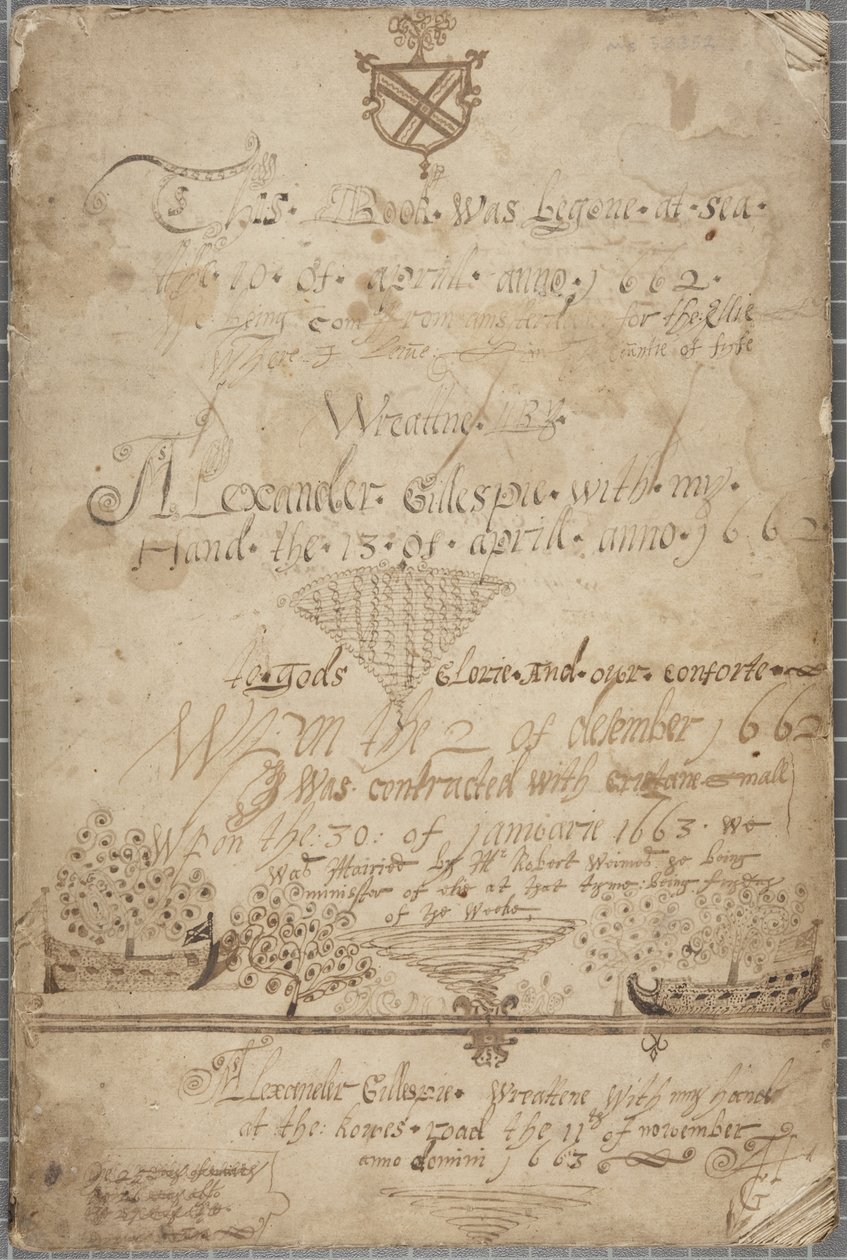 This Book was begone at sea
the 10 of aprill anno 1662
being com from amsterdam for the Ellie
Where I in Countie of fyfe
Wreattne BY
Alexander Gillespie with my
Hand the 13 of aprill anno 1662
to gods Glorie And our conforte
Wpon the 2 of desember 1662
I Was contracted with small
Wpon the 30 of januarie 1663 we
was Mairied by Mr Robert Weimes he being
minister of elie at that tyme being
of the Weeke
Alexander Gillespie Wreattene With my hand
at the kowes road the 11th of november
anno domini 1663